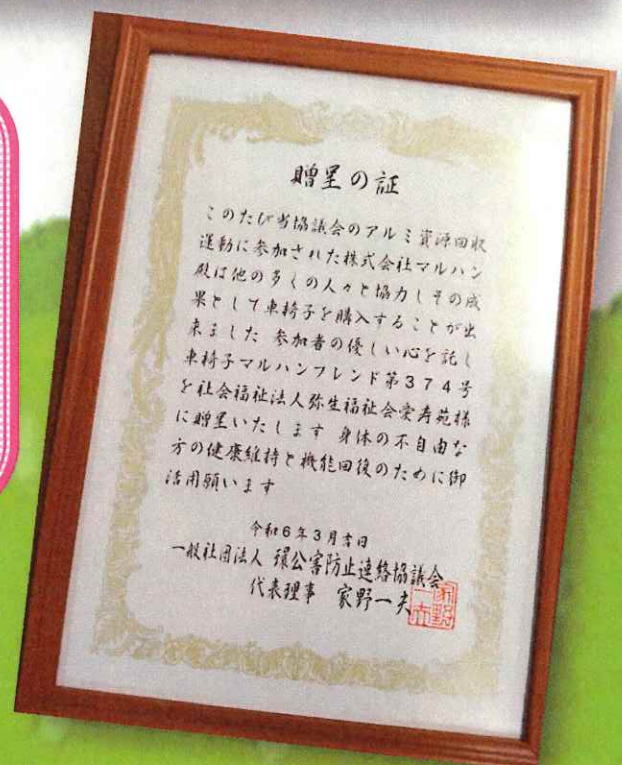 贈呈の証
このたび当協議会のアルミ資源回収
運動に参加された株式会社マルハン
殿は他の多くの人々と協力しその成
果として車椅子を購入することが出
来ました 参加者の優しい心を託し
車椅子マルハンフレンド第374号
を社会福祉法人弥生福祉会愛寿苑様
に贈呈いたします 身体の不自由な
方の健康維持と機能回復のために御
活用願います
令和6年3月吉日
一般社団法人 環公害防止連絡協議会
代表理事 家野一夫